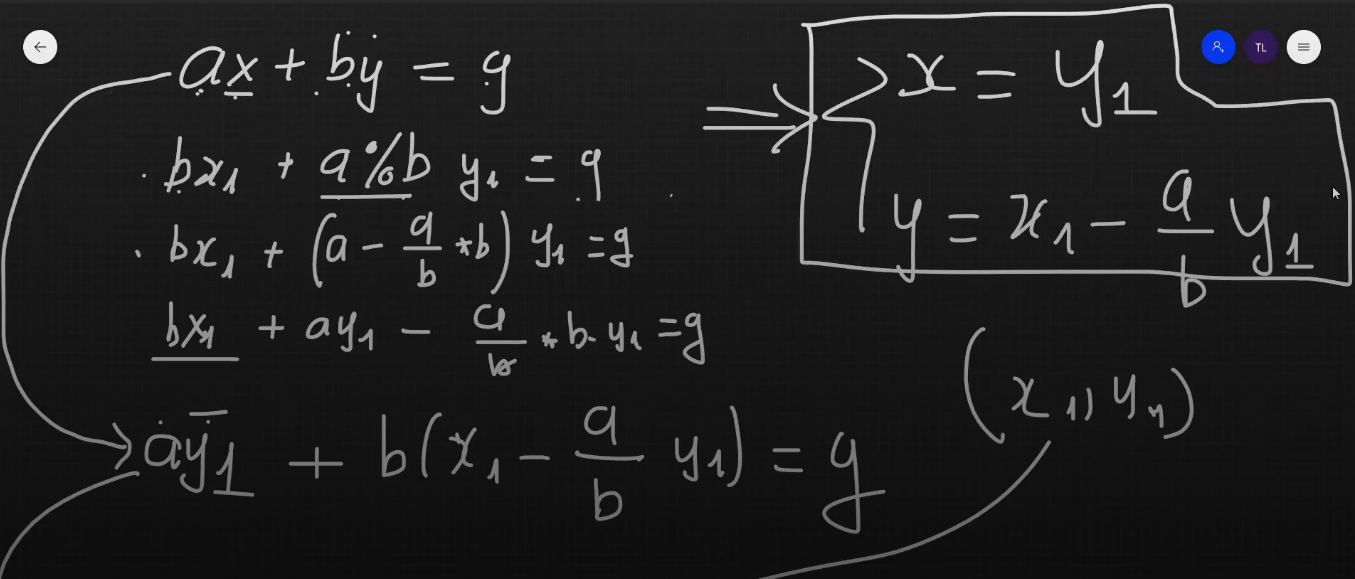 ax + by = g
bx₁ + a%b y₁ = g
bx₁ + (a - a/b * b) y₁ = g
bx₁ + ay₁ - a/b * b · y₁ = g
ay₁ + b(x₁ - a/b y₁) = g
⇒ x = y₁
y = x₁ - a/b y₁
(x₁, y₁)
TL